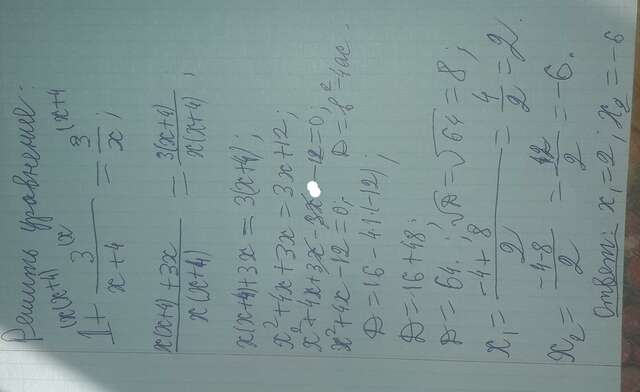 Решить уравнение:
1 + 3/(x+4) = 3/x;
(x(x+4) + 3x)/(x(x+4)) = 3(x+4)/(x(x+4));
x(x+4)+3x = 3(x+4);
x²+4x+3x = 3x+12;
x²+4x+3x-3x-12=0;
x²+4x-12=0; D=b²-4ac.
D=16-4·(-12);
D=16+48;
D=64; √D=√64=8;
x₁= (-4+8)/2 = 4/2 = 2.
x₂= (-4-8)/2 = -12/2 = -6.
Ответ: x₁=2; x₂=-6